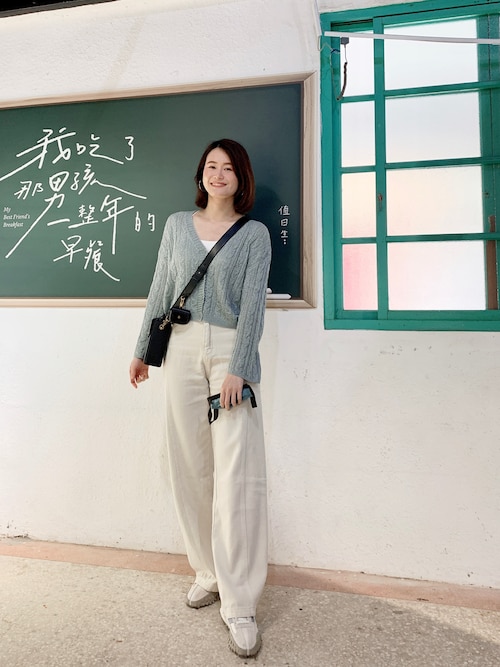 我吃了
那男孩
一整年的
早餐
My
Best Friend's
Breakfast
值日生: